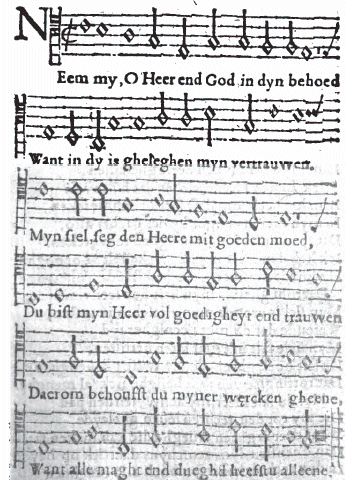 NEem my, O Heer end God in dyn behoed
Want in dy is gheleghen myn vertrauwen.
Myn siel, seg den Heere mit goeden moed,
Du bist myn Heer vol goedigheyt end trauwen
Daerom behoufst du myner wercken gheene,
Want alle maght end dueghd heefstu alleene.